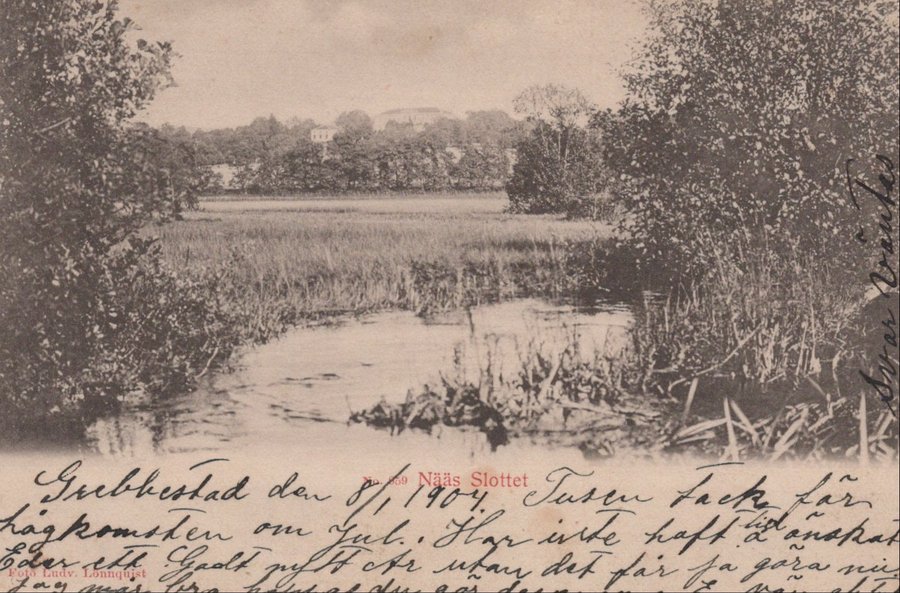 No. 959 Nääs Slottet
Grebbestad den 8/1 1904. Tusen tack får
hågkomsten om Jul. Har inte haft tid å önskat
Eder ett Godt nytt År utan det får ja göra nu
Foto Ludv. Lönnquist
Jag mår bra du gör
Svar väntas